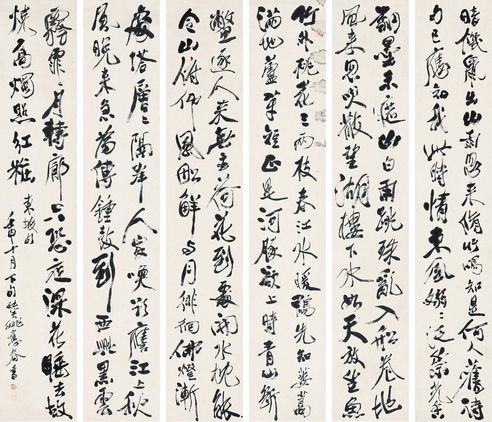 暗饑鼠出山雨忽來脩竹鳴知是何人舊詩
句已應知我此時情東風嫋嫋泛崇光香
翻墨未遮山白雨跳珠亂入船卷地
風來忽吹散望湖樓下水如天放生魚
竹外桃花三兩枝春江水暖鴨先知蔞蒿
滿地蘆芽短正是河豚欲上時青山斷
鱉逐人來無主荷花到處開水枕能
令山俯仰風船解與月徘徊佛燈漸
處塔層層隔岸人家喚欲譍江上秋
風晚來急為傳鐘鼓到西興黑雲
霧霏霏月轉廊只恐夜深花睡去故
燒高燭照紅粧
東坡
十月下旬 書